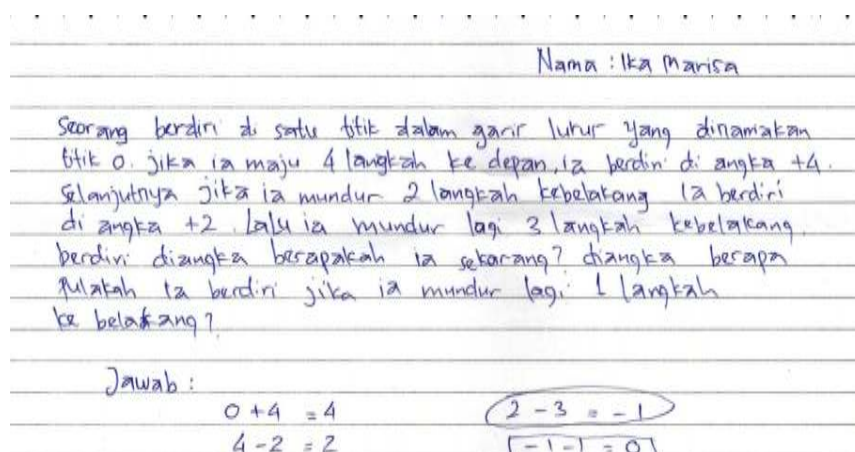 Nama : Ika Marisa
Seorang berdiri di satu titik dalam garis lurus yang dinamakan
titik 0. jika ia maju 4 langkah ke depan, ia berdiri di angka +4.
Selanjutnya jika ia mundur 2 langkah kebelakang ia berdiri
di angka +2. Lalu ia mundur lagi 3 langkah kebelakang.
berdiri diangka berapakah ia sekarang? diangka berapa
pulakah ia berdiri jika ia mundur lagi 1 langkah
ke belakang?
Jawab :
0 + 4 = 4
2 - 3 = -1
4 - 2 = 2
-1 - 1 = 0